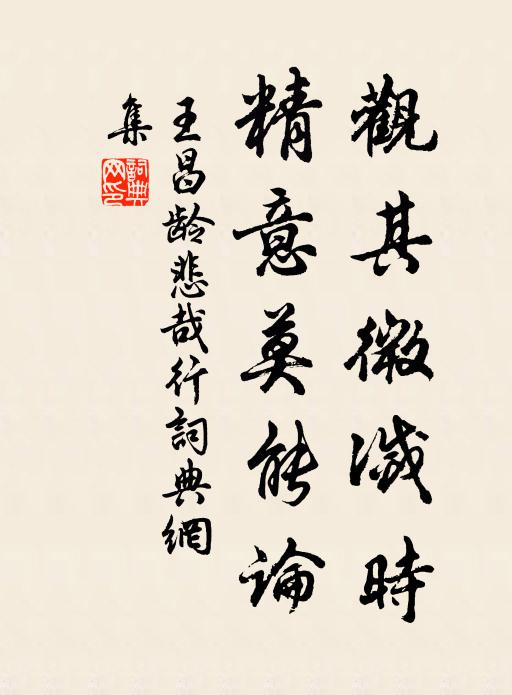 觀其微滅時
精意莫能論
王昌龄悲哉行詞典網
集
詞典
网印